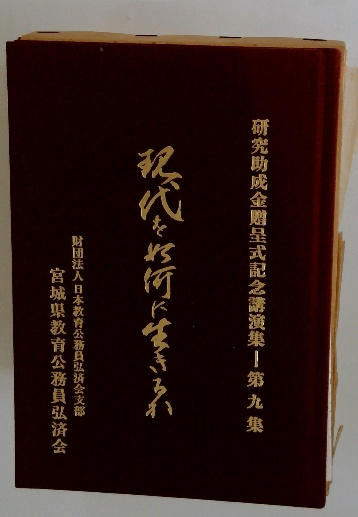 研究助成金贈呈式記念講演集ー第九集
現代を如何に生きるか
財団法人日本教育公務員弘済会支部
宮城県教育公務員弘済会